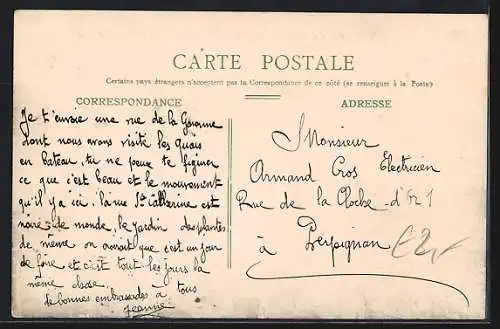 CARTE POSTALE
Certains pays étrangers n'acceptent pas la Correspondance de ce côté (se renseigner à la Poste)
CORRESPONDANCE
Je t'envoie une rue de la Garonne
dont nous avons visité les quais
en bateau, tu ne peux te figurer
ce que c'est beau et le mouvement
qu'il y a ici. la rue Ste Catherine est
noire de monde, le jardin des plantes
de même on croirait que c'est un jour
de foire et c'est tout les jours la
même chose.
de bonnes embrassades à tous
Jeanne
ADRESSE
Monsieur
Armand Cros Electricien
Rue de la Cloche d'or 1
à Perpignan